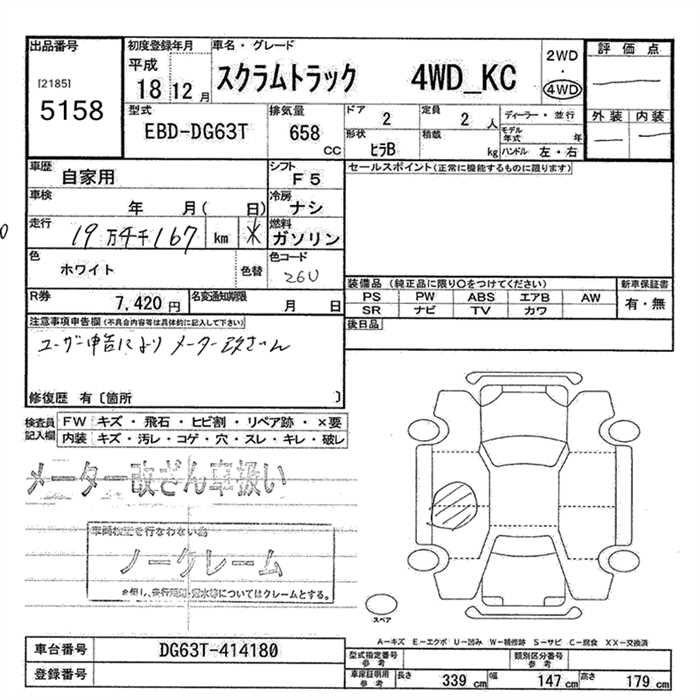 出品番号
[2185]
5158
初度登録年月
平成
18 12 月
車名・グレード
スクラムトラック 4WD_KC
2WD
・
4WD
評価点
外装 内装
型式
EBD-DG63T
排気量
658
CC
ドア
2
定員
2 人
形状
ﾋﾗB
積載
kg
ディーラー・並行
モデル年式 年
ハンドル 左・右
車歴
自家用
シフト
F5
車検
年 月( 日)
冷房
ナシ
走行
19万4千167 km
燃料
ガソリン
色
ホワイト
色替
色コード
26U
R券
7,420 円
名変通知期限
月 日
セールスポイント(正常に機能するものに限ります)
装備品 (純正品に限り○をつけてください)
PS PW ABS エアB AW
SR ナビ TV カワ
新車保証書
有・無
後日品
注意事項申告欄(不具合内容等は具体的に記入して下さい)
ユーザー申告により メーター改ざん
修復歴 有〔箇所 〕
検査員記入欄
FW キズ・飛石・ヒビ割・リペア跡・×要
内装 キズ・汚レ・コゲ・穴・スレ・キレ・破レ
メーター改ざん車扱い
車両検査を行なわない為
ノークレーム
※但し、走行距離・冠水等についてはクレームとする。
スペア
A－キズ E－エクボ U－凹み W－補修跡 S－サビ C－腐食 XX－交換済
車台番号
DG63T-414180
登録番号
型式指定番号
参考
類別区分番号
参考
車庫証明用
参考
長さ 339 cm 幅 147 cm 高さ 179 cm